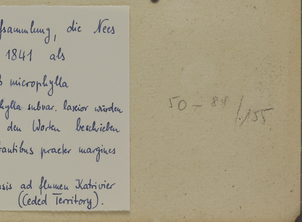 sammlung, die Nees
1841 als
microphylla
phylla subvar. laxior würden
den Worten beschrieben
antibus praeter margines
sis ad flumen Katrivier
(Ceded Territory).
50-88/.155